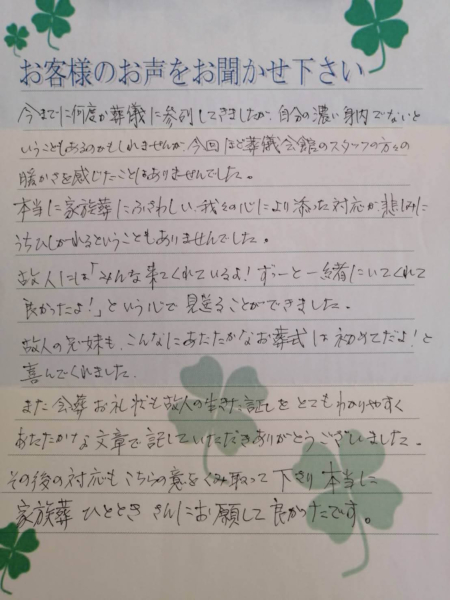 お客様のお声をお聞かせ下さい
今までに何度か葬儀に参列してきましたが、自分の濃い身内でないと
いうこともあるのかもしれませんが、今回ほど葬儀会館のスタッフの方々の
暖かさを感じたことはありませんでした。
本当に家族葬にふさわしい、我々の心により添った対応が悲しみに
うちひしがれるということもありませんでした。
故人には「みんな来てくれているよ！ずぅーと一緒にいてくれて
良かったよ！」という心で見送ることができました。
故人の兄妹も、こんなにあたたかなお葬式は初めてだよ！と
喜んでくれました。
また会葬お礼状も故人の生きた証しをとてもわかりやすく
あたたかな文章で記していただきありがとうございました。
その後の対応もこちらの意をくみ取って下さり本当に
家族葬ひとときさんにお願して良かったです。